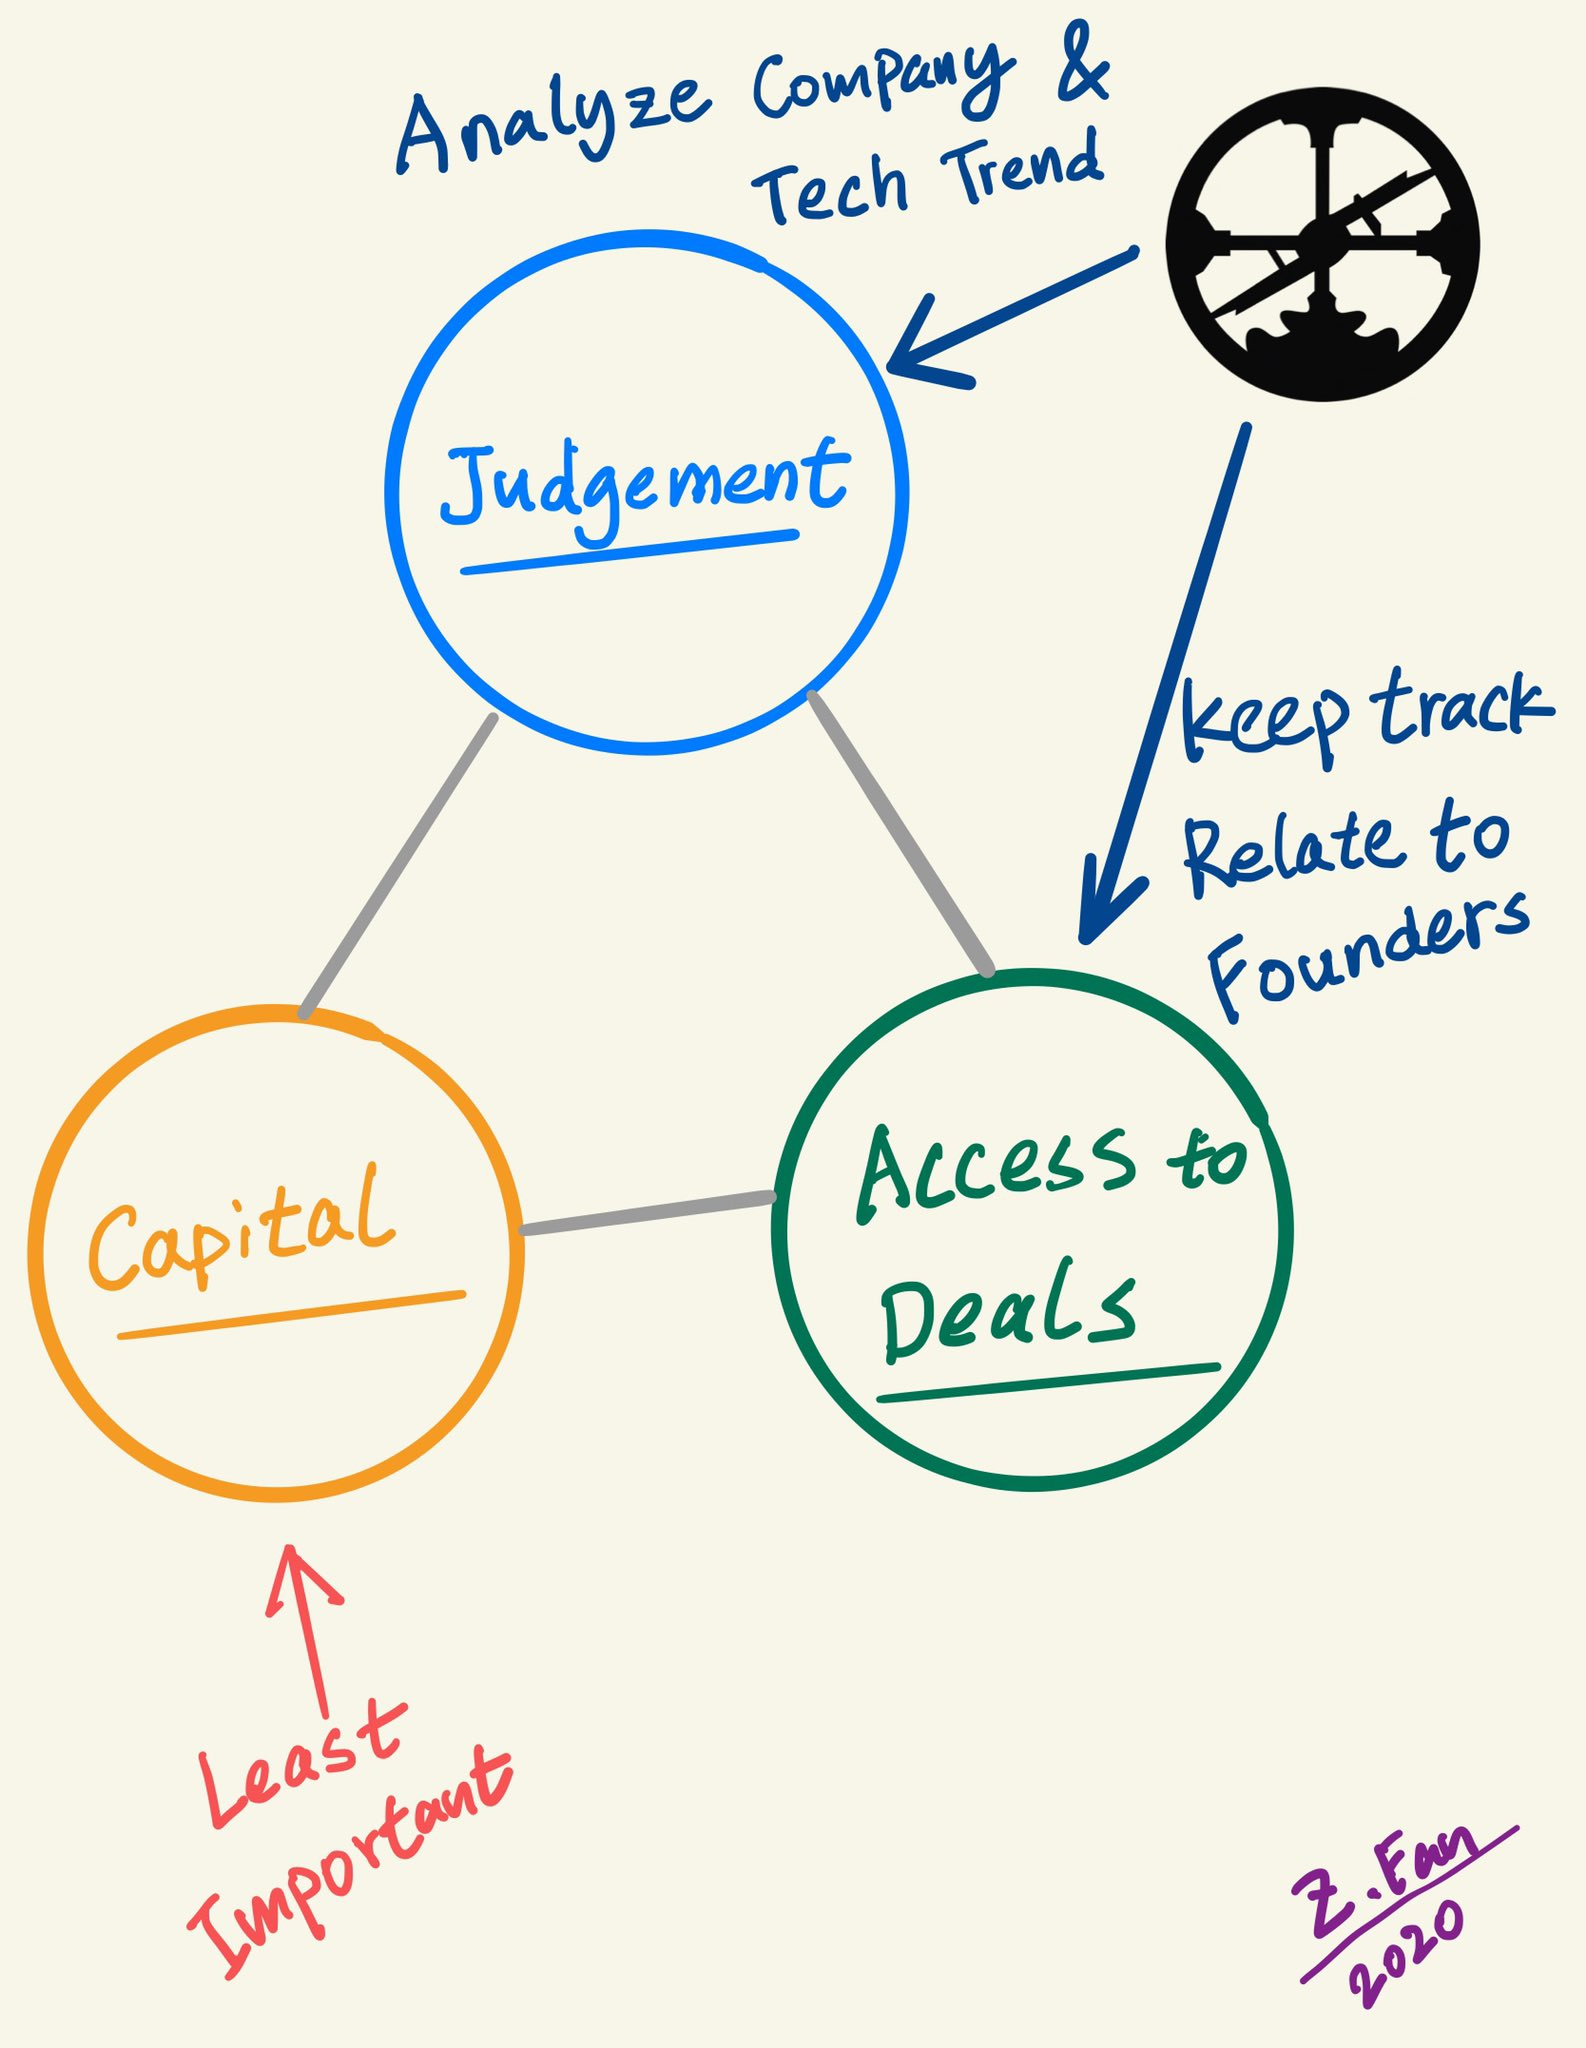 Analyze Company &
Tech Trend
Judgement
Keep track
Relate to
Founders
Capital
Access to
Deals
Least
Important
Z. Fan
2020